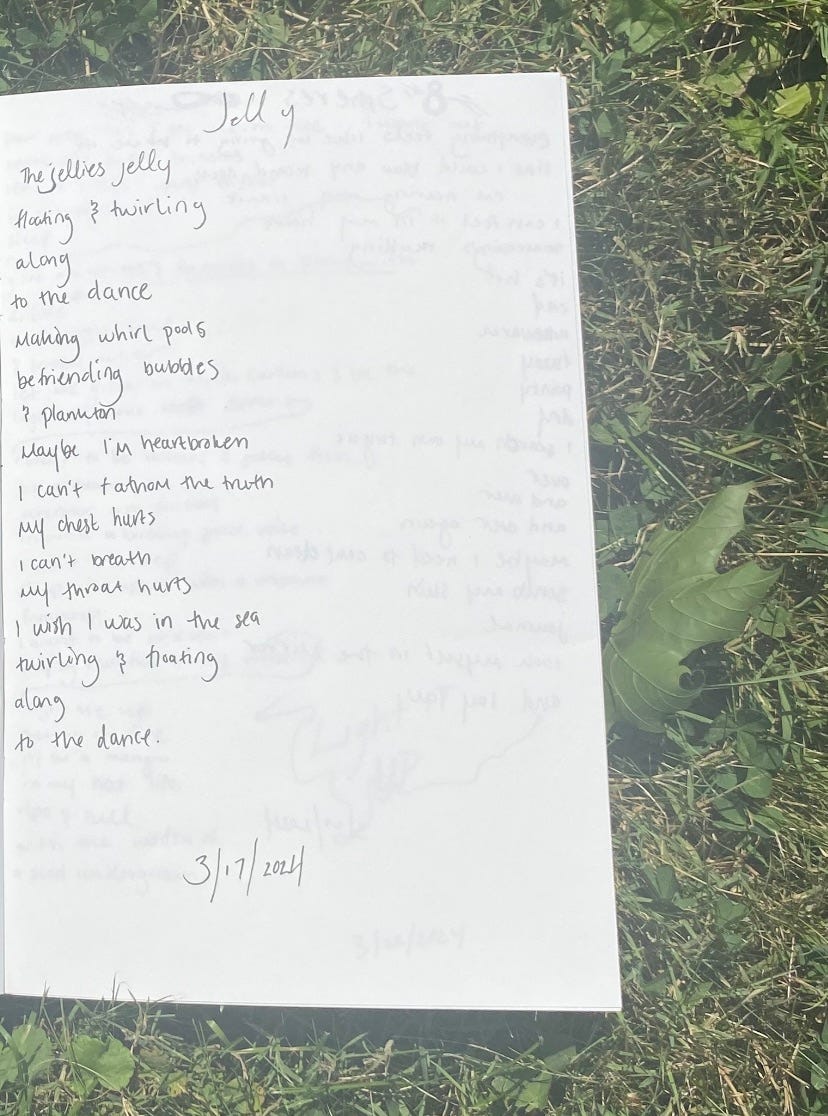 Jelly
The jellies jelly
floating & twirling
along
to the dance
Making whirl pools
befriending bubbles
& plankton
Maybe I'm heartbroken
I can't fathom the truth
My chest hurts
I can't breath
My throat hurts
I wish I was in the sea
twirling & floating
along
to the dance.
3/17/2024